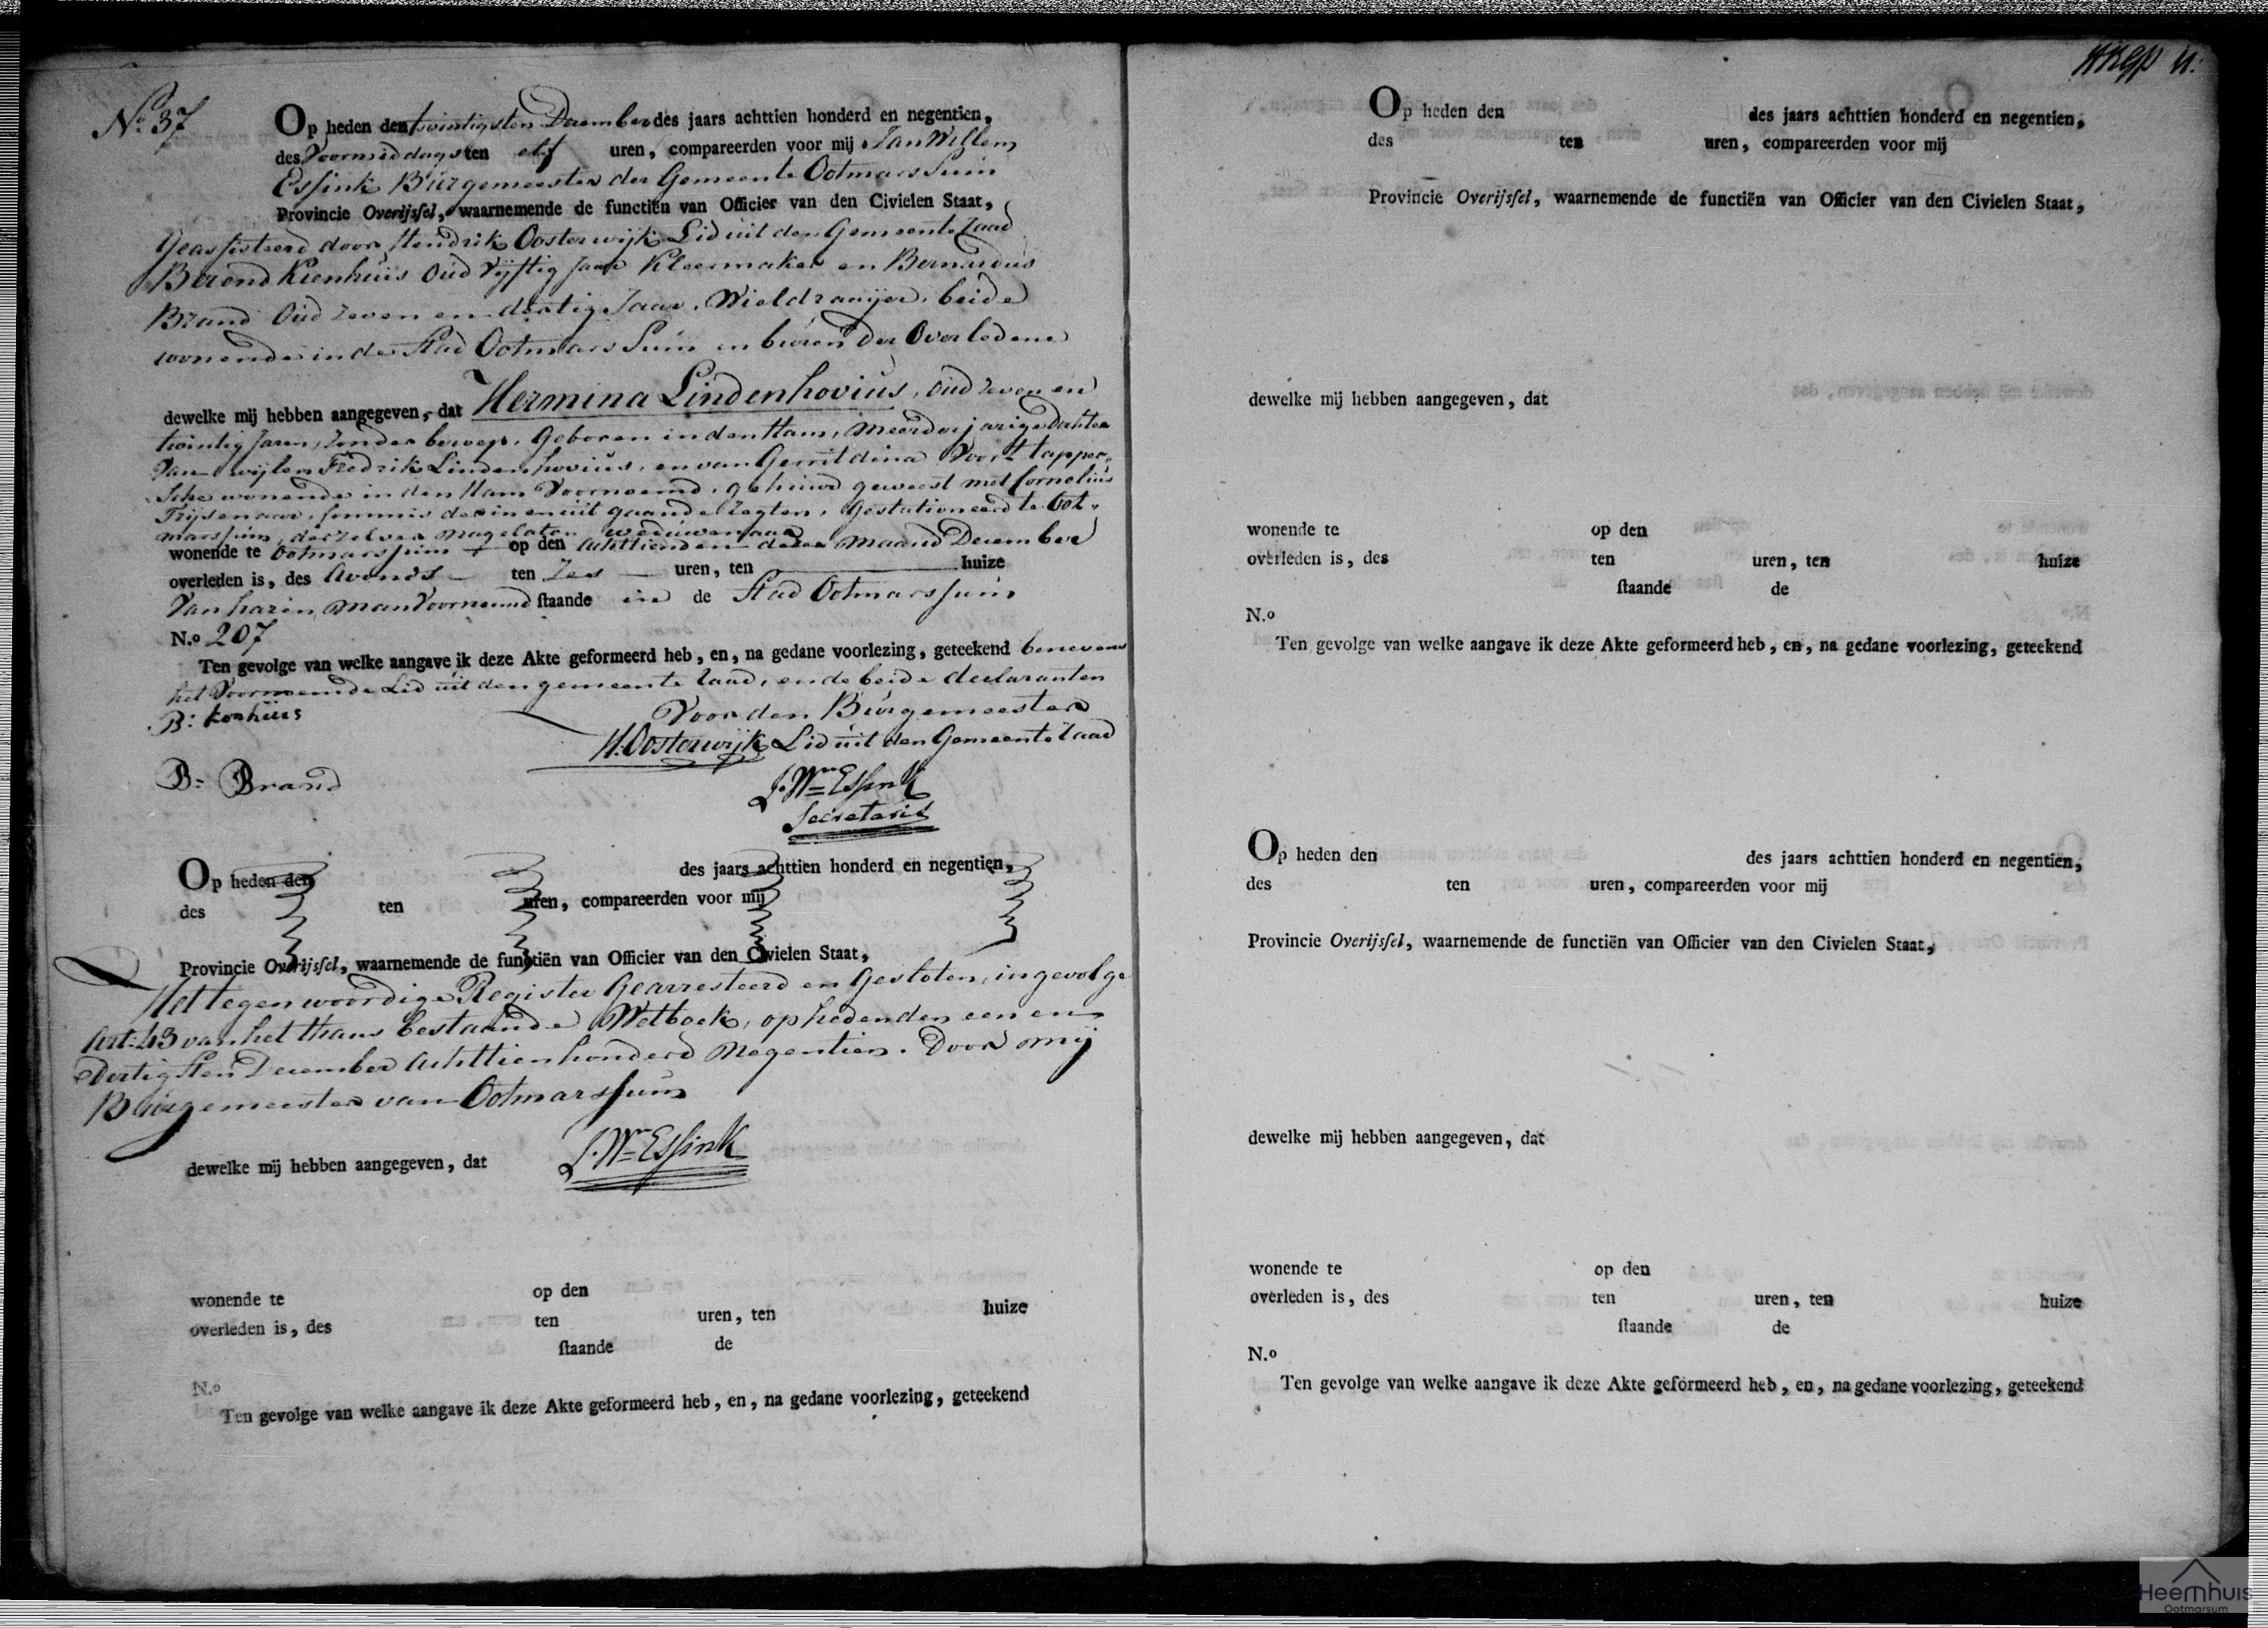 No. 37
Op heden den twintigsten December des jaars achttien honderd en negentien,
des Voormiddags ten elf uren, compareerden voor mij Jan Willem
Essink Burgemeester der Gemeente Ootmarssum
Provincie Overijssel, waarnemende de functiën van Officier van den Civielen Staat,
Geassisteerd door Hendrik Oosterwijk Lid uit den Gemeente Raad
Berend Kienhuis Oud Vijftig Jaar Kleermaker en Bernardus
Brand Oud Zeven en dertig Jaar, Wieldraaijer, beide
wonende in de Stad Ootmarssum en buren der Overledene
dewelke mij hebben aangegeven, dat Hermina Lindenhovius, oud zeven en
twintig Jaren, zonder beroep, Geboren in den Ham, Meerderjarige dochter
Van wijlen Fredrik Lindenhovius, en van Gerritdina Voort
wonende in den Ham Voornoemd, gehuwd geweest met Cornelius
der in en uit gaande regten, Gestationeerd te Oot-
marssum, derzelver nagelaten weduwenaar
wonende te Ootmarssum op den achttienden dezer maand December
overleden is, des Avonds ten Zes uren, ten huize
Van haren man Voornoemd staande in de Stad Ootmarssum
N.o 207
Ten gevolge van welke aangave ik deze Akte geformeerd heb, en, na gedane voorlezing, geteekend benevens
het Voornoemde Lid uit den gemeente Raad, en de beide declaranten
B: Konhuis
Voor den Burgemeester
H. Oosterwijk Lid uit den Gemeente Raad
B: Brand
J. Wm Essink
Secretaris
Op heden den des jaars achttien honderd en negentien,
des ten uren, compareerden voor mij
Provincie Overijssel, waarnemende de functiën van Officier van den Civielen Staat,
Het tegenwoordige Register Gearresteerd en Gesloten, ingevolge
Art: 43 van het thans bestaande Wetboek, op heden den een en
Dertigsten December Achttienhonderd Negentien. Door mij
Burgemeester van Ootmarssum
dewelke mij hebben aangegeven, dat
J. Wm Essink
wonende te op den
overleden is, des ten uren, ten huize
staande de
N.o
Ten gevolge van welke aangave ik deze Akte geformeerd heb, en, na gedane voorlezing, geteekend
Op heden den des jaars achttien honderd en negentien,
des ten uren, compareerden voor mij
Provincie Overijssel, waarnemende de functiën van Officier van den Civielen Staat,
dewelke mij hebben aangegeven, dat
wonende te op den
overleden is, des ten uren, ten huize
staande de
N.o
Ten gevolge van welke aangave ik deze Akte geformeerd heb, en, na gedane voorlezing, geteekend
Op heden den des jaars achttien honderd en negentien,
des ten uren, compareerden voor mij
Provincie Overijssel, waarnemende de functiën van Officier van den Civielen Staat,
dewelke mij hebben aangegeven, dat
wonende te op den
overleden is, des ten uren, ten huize
staande de
N.o
Ten gevolge van welke aangave ik deze Akte geformeerd heb, en, na gedane voorlezing, geteekend
Heemhuis
Ootmarsum